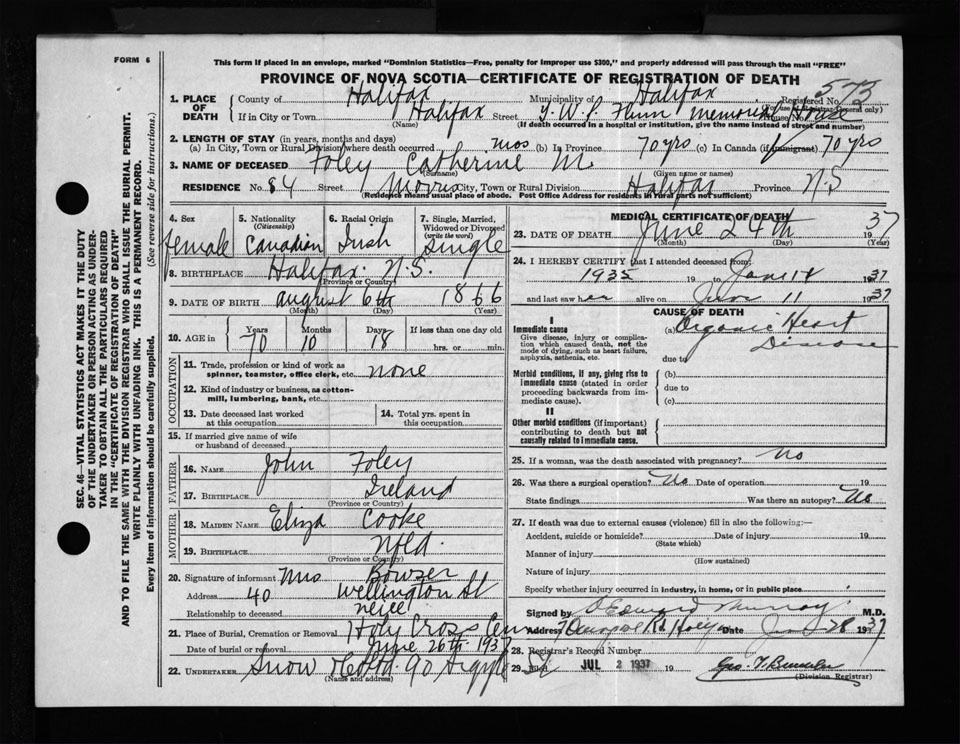 FORM 6
This form if placed in an envelope, marked "Dominion Statistics—Free, penalty for improper use $300," and properly addressed will pass through the mail "FREE"
PROVINCE OF NOVA SCOTIA—CERTIFICATE OF REGISTRATION OF DEATH
573
1. PLACE OF DEATH County of Halifax Municipality of Halifax Registered No. (For use of Registrar General only)
If in City or Town Halifax (Name) Street Flinn Memorial House House No.
(If death occurred in a hospital or institution, give the name instead of street and number)
2. LENGTH OF STAY (in years, months and days)
(a) In City, Town or Rural Division where death occurred mos (b) In Province 70 yrs (c) In Canada (if immigrant) 70 yrs
3. NAME OF DECEASED Foley Catherine M.
(Surname) (Given name or names)
RESIDENCE No. 84 Street Morris City, Town or Rural Division Halifax Province N.S
(Residence means usual place of abode. Post Office Address for residents in rural parts not sufficient)
4. Sex female
5. Nationality (Citizenship) Canadian
6. Racial Origin Irish
7. Single, Married, Widowed or Divorced (write the word) Single
8. BIRTHPLACE Halifax. N.S.
(Province or Country)
9. DATE OF BIRTH august 6th 1866
(Month) (Day) (Year)
10. AGE in Years 70 Months 10 Days 18 If less than one day old hrs. or min.
OCCUPATION
11. Trade, profession or kind of work as spinner, teamster, office clerk, etc. none
12. Kind of industry or business, as cotton-mill, lumbering, bank, etc.
13. Date deceased last worked at this occupation
14. Total yrs. spent in this occupation
15. If married give name of wife or husband of deceased
FATHER
16. NAME John Foley
17. BIRTHPLACE Ireland
(Province or Country)
MOTHER
18. MAIDEN NAME Eliza Cooke
19. BIRTHPLACE Nfld.
(Province or Country)
20. Signature of informant Mrs Bowser
Address 40 Wellington St
Relationship to deceased neice
21. Place of Burial, Cremation or Removal Holy Cross Cem
Date of burial or removal June 26th 1937
22. UNDERTAKER Snow & Co Ltd 90 Argyle St
(Name and address)
MEDICAL CERTIFICATE OF DEATH
23. DATE OF DEATH June 24th 1937
(Month) (Day) (Year)
24. I HEREBY CERTIFY that I attended deceased from:
1935 19 to June 1937
and last saw her alive on June 11 1937
CAUSE OF DEATH
I
Immediate cause
Give disease, injury or complication which caused death, not the mode of dying, such as heart failure, asphyxia, asthenia, etc.
(a) Organic Heart Disease
due to
Morbid conditions, if any, giving rise to immediate cause (stated in order proceeding backwards from immediate cause).
(b)
due to
(c)
II
Other morbid conditions (if important) contributing to death but not causally related to immediate cause.
25. If a woman, was the death associated with pregnancy? No
26. Was there a surgical operation? No Date of operation 19
State findings Was there an autopsy? No
27. If death was due to external causes (violence) fill in also the following:—
Accident, suicide or homicide? Date of injury 19
(State which)
Manner of injury
(How sustained)
Nature of injury
Specify whether injury occurred in industry, in home, or in public place
Signed by Edward Murray M.D.
Address Date 28 1937
28. Registrar's Record Number
29. Filed JUL 2 1937 19
(Division Registrar)
SEC. 46—VITAL STATISTICS ACT MAKES IT THE DUTY
OF THE UNDERTAKER OR PERSON ACTING AS UNDER-
TAKER TO OBTAIN ALL THE PARTICULARS REQUIRED
IN THE "CERTIFICATE OF REGISTRATION OF DEATH"
AND TO FILE THE SAME WITH THE DIVISION REGISTRAR WHO SHALL ISSUE THE BURIAL PERMIT.
WRITE PLAINLY WITH UNFADING INK. THIS IS A PERMANENT RECORD.
Every item of information should be carefully supplied. (See reverse side for instructions.)